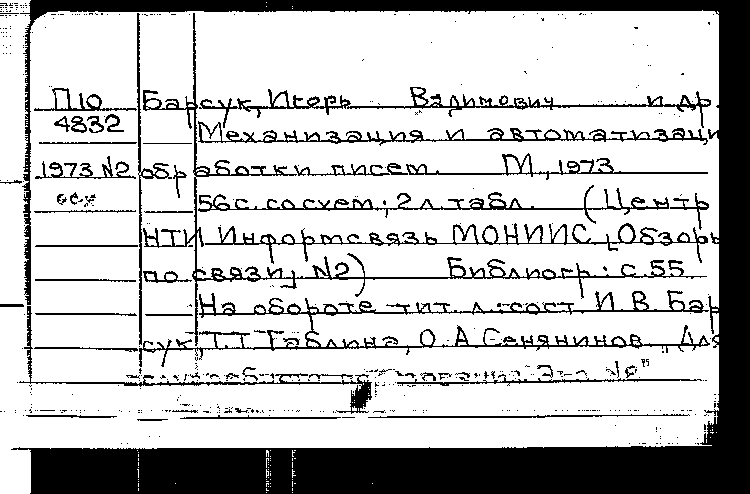 П10 Барсук, Игорь Вадимович и др.
4832 Механизация и автоматизаци
1973 №2 обработки писем. М., 1973.
56 с. со схем.; 2 л. табл. (Центр
НТИ Информсвязь МОНИИС [Обзоры
по связи], №2) Библиогр.: с. 55
На обороте тит. л.: сост. И. В. Бар
сук, Т. Т. Таблина, О. А. Сенянинов „Для
служебного пользования. Экз. №"